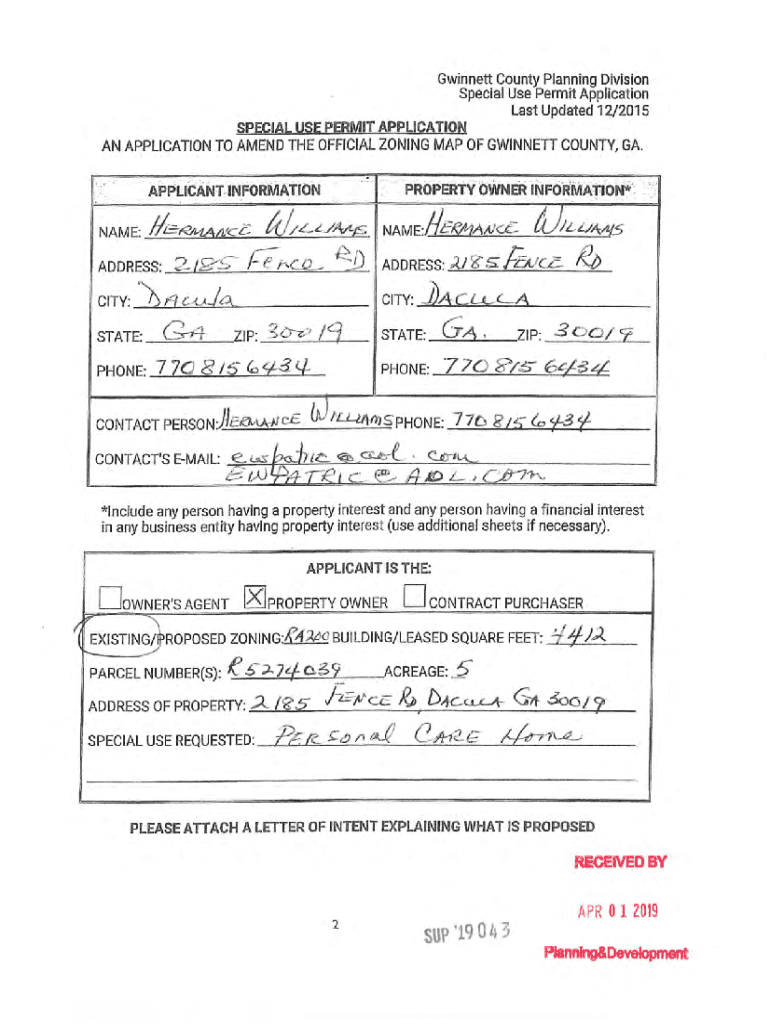 Gwinnett County Planning Division
Special Use Permit Application
Last Updated 12/2015
SPECIAL USE PERMIT APPLICATION
AN APPLICATION TO AMEND THE OFFICIAL ZONING MAP OF GWINNETT COUNTY, GA.
APPLICANT INFORMATION PROPERTY OWNER INFORMATION*
NAME: HERMANCE WILLIAMS NAME: HERMANCE WILLIAMS
ADDRESS: 2185 Fence RD ADDRESS: 2185 FENCE RD
CITY: DAcula CITY: DACULA
STATE: GA ZIP: 30019 STATE: GA. ZIP: 30019
PHONE: 770 815 6434 PHONE: 770 815 6434
CONTACT PERSON: HERMANCE WILLIAMS PHONE: 770 815 6434
CONTACT'S E-MAIL: ewpatric@aol.com
EWPATRIC@AOL.COM
*Include any person having a property interest and any person having a financial interest
in any business entity having property interest (use additional sheets if necessary).
APPLICANT IS THE:
OWNER'S AGENT X PROPERTY OWNER CONTRACT PURCHASER
EXISTING/PROPOSED ZONING: RA200 BUILDING/LEASED SQUARE FEET: 4412
PARCEL NUMBER(S): R5274039 ACREAGE: 5
ADDRESS OF PROPERTY: 2185 FENCE RD DACULA GA 30019
SPECIAL USE REQUESTED: PERSonal CARE Home
PLEASE ATTACH A LETTER OF INTENT EXPLAINING WHAT IS PROPOSED
RECEIVED BY
APR 01 2019
2
SUP '19 043
Planning&Development